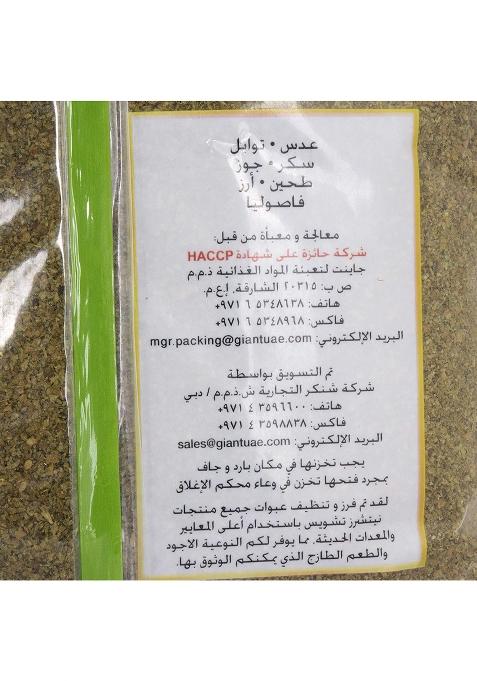 عدس • توابل
سكر • جوز
طحين • أرز
فاصوليا
معالجة و معبأة من قبل:
شركة حائزة على شهادة HACCP
جاينت لتعبئة المواد الغذائية ذ.م.م
ص ب: ٢٠٣١٥ الشارقة، إ.ع.م.
هاتف: ٥٣٤٨٦٣٨ ٦ ٩٧١+
فاكس: ٥٣٤٨٩٦٨ ٦ ٩٧١+
البريد الإلكتروني: mgr.packing@giantuae.com
تم التسويق بواسطة
شركة شنكر التجارية ش.ذ.م.م / دبي
هاتف: ٣٥٩٦٦٠٠ ٤ ٩٧١+
فاكس: ٣٥٩٨٨٣٨ ٤ ٩٧١+
البريد الإلكتروني: sales@giantuae.com
يجب تخزنها في مكان بارد و جاف
بمجرد فتحها تخزن في وعاء محكم الإغلاق
لقد تم فرز و تنظيف عبوات جميع منتجات
نيتشرز تشويس باستخدام أعلى المعايير
والمعدات الحديثة. مما يوفر لكم النوعية الاجود
والطعم الطازج الذي يمكنكم الوثوق بها.